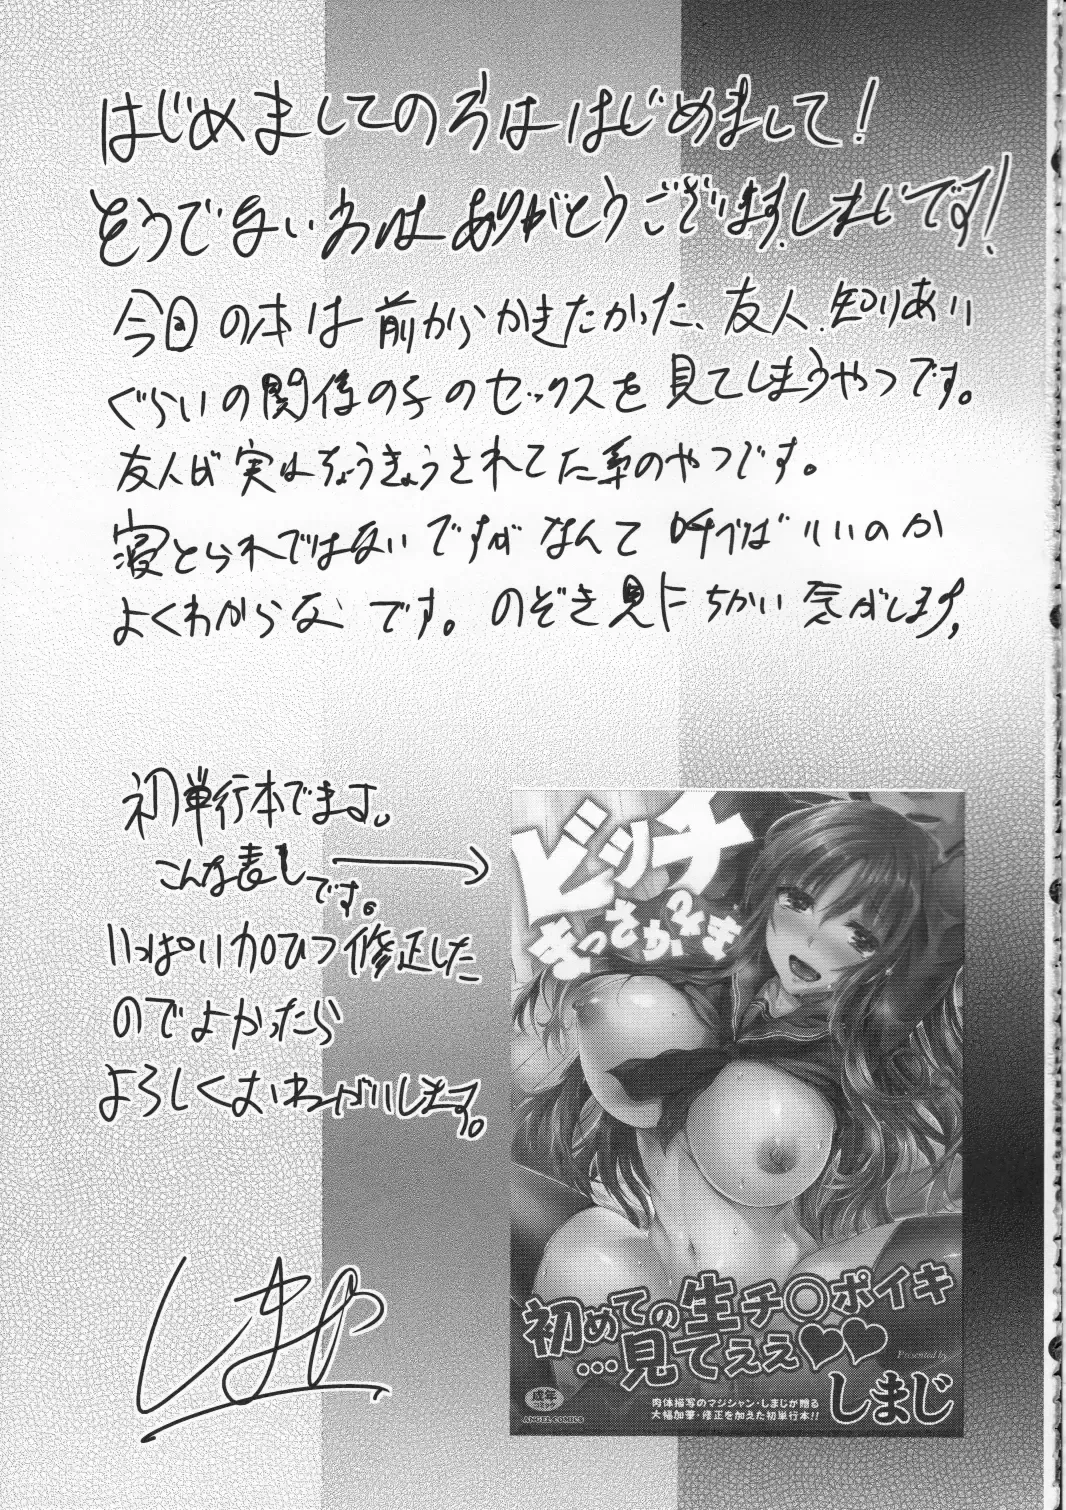 はじめましての方ははじめまして!
そうでない方はありがとうございます.しまじです!
今回の本は前からかきたかった、友人.知りあい
ぐらいの関係の子のセックスを見てしまうやつです。
友人が実はちょうきょうされてた系のやつです。
寝とられではないですがなんて呼べばいいのか
よくわからないです。のぞき見にちかい気がします。
初単行本でます。
こんな表しです。
いっぱい加ひつ修正した
のでよかったら
よろしくおねがいします。
しまじ
ビッチ
まっさかさま
初めての生チ〇ポイキ
…見てぇぇ♥♥
Presented by
しまじ
成年
コミック
ANGEL COMICS
肉体描写のマジシャン・しまじが贈る
大幅加筆・修正を加えた初単行本!!